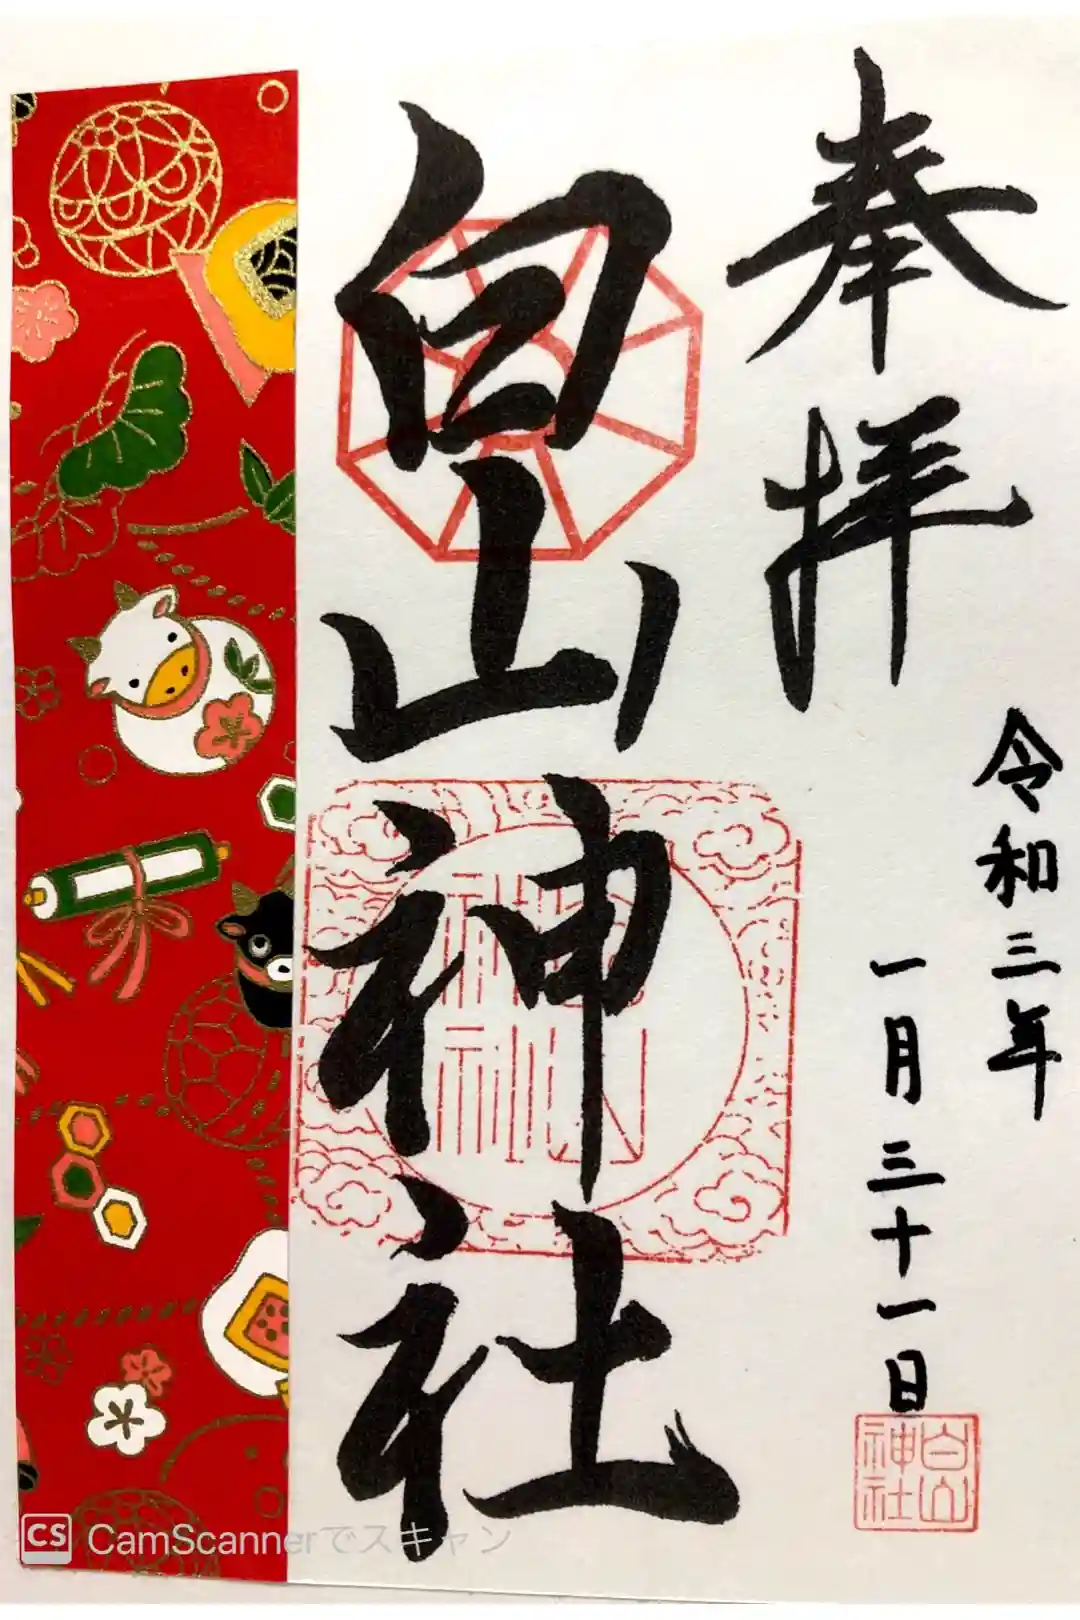 奉拝
令和三年
一月三十一日
白山神社
白山
神社
CS CamScannerでスキャン